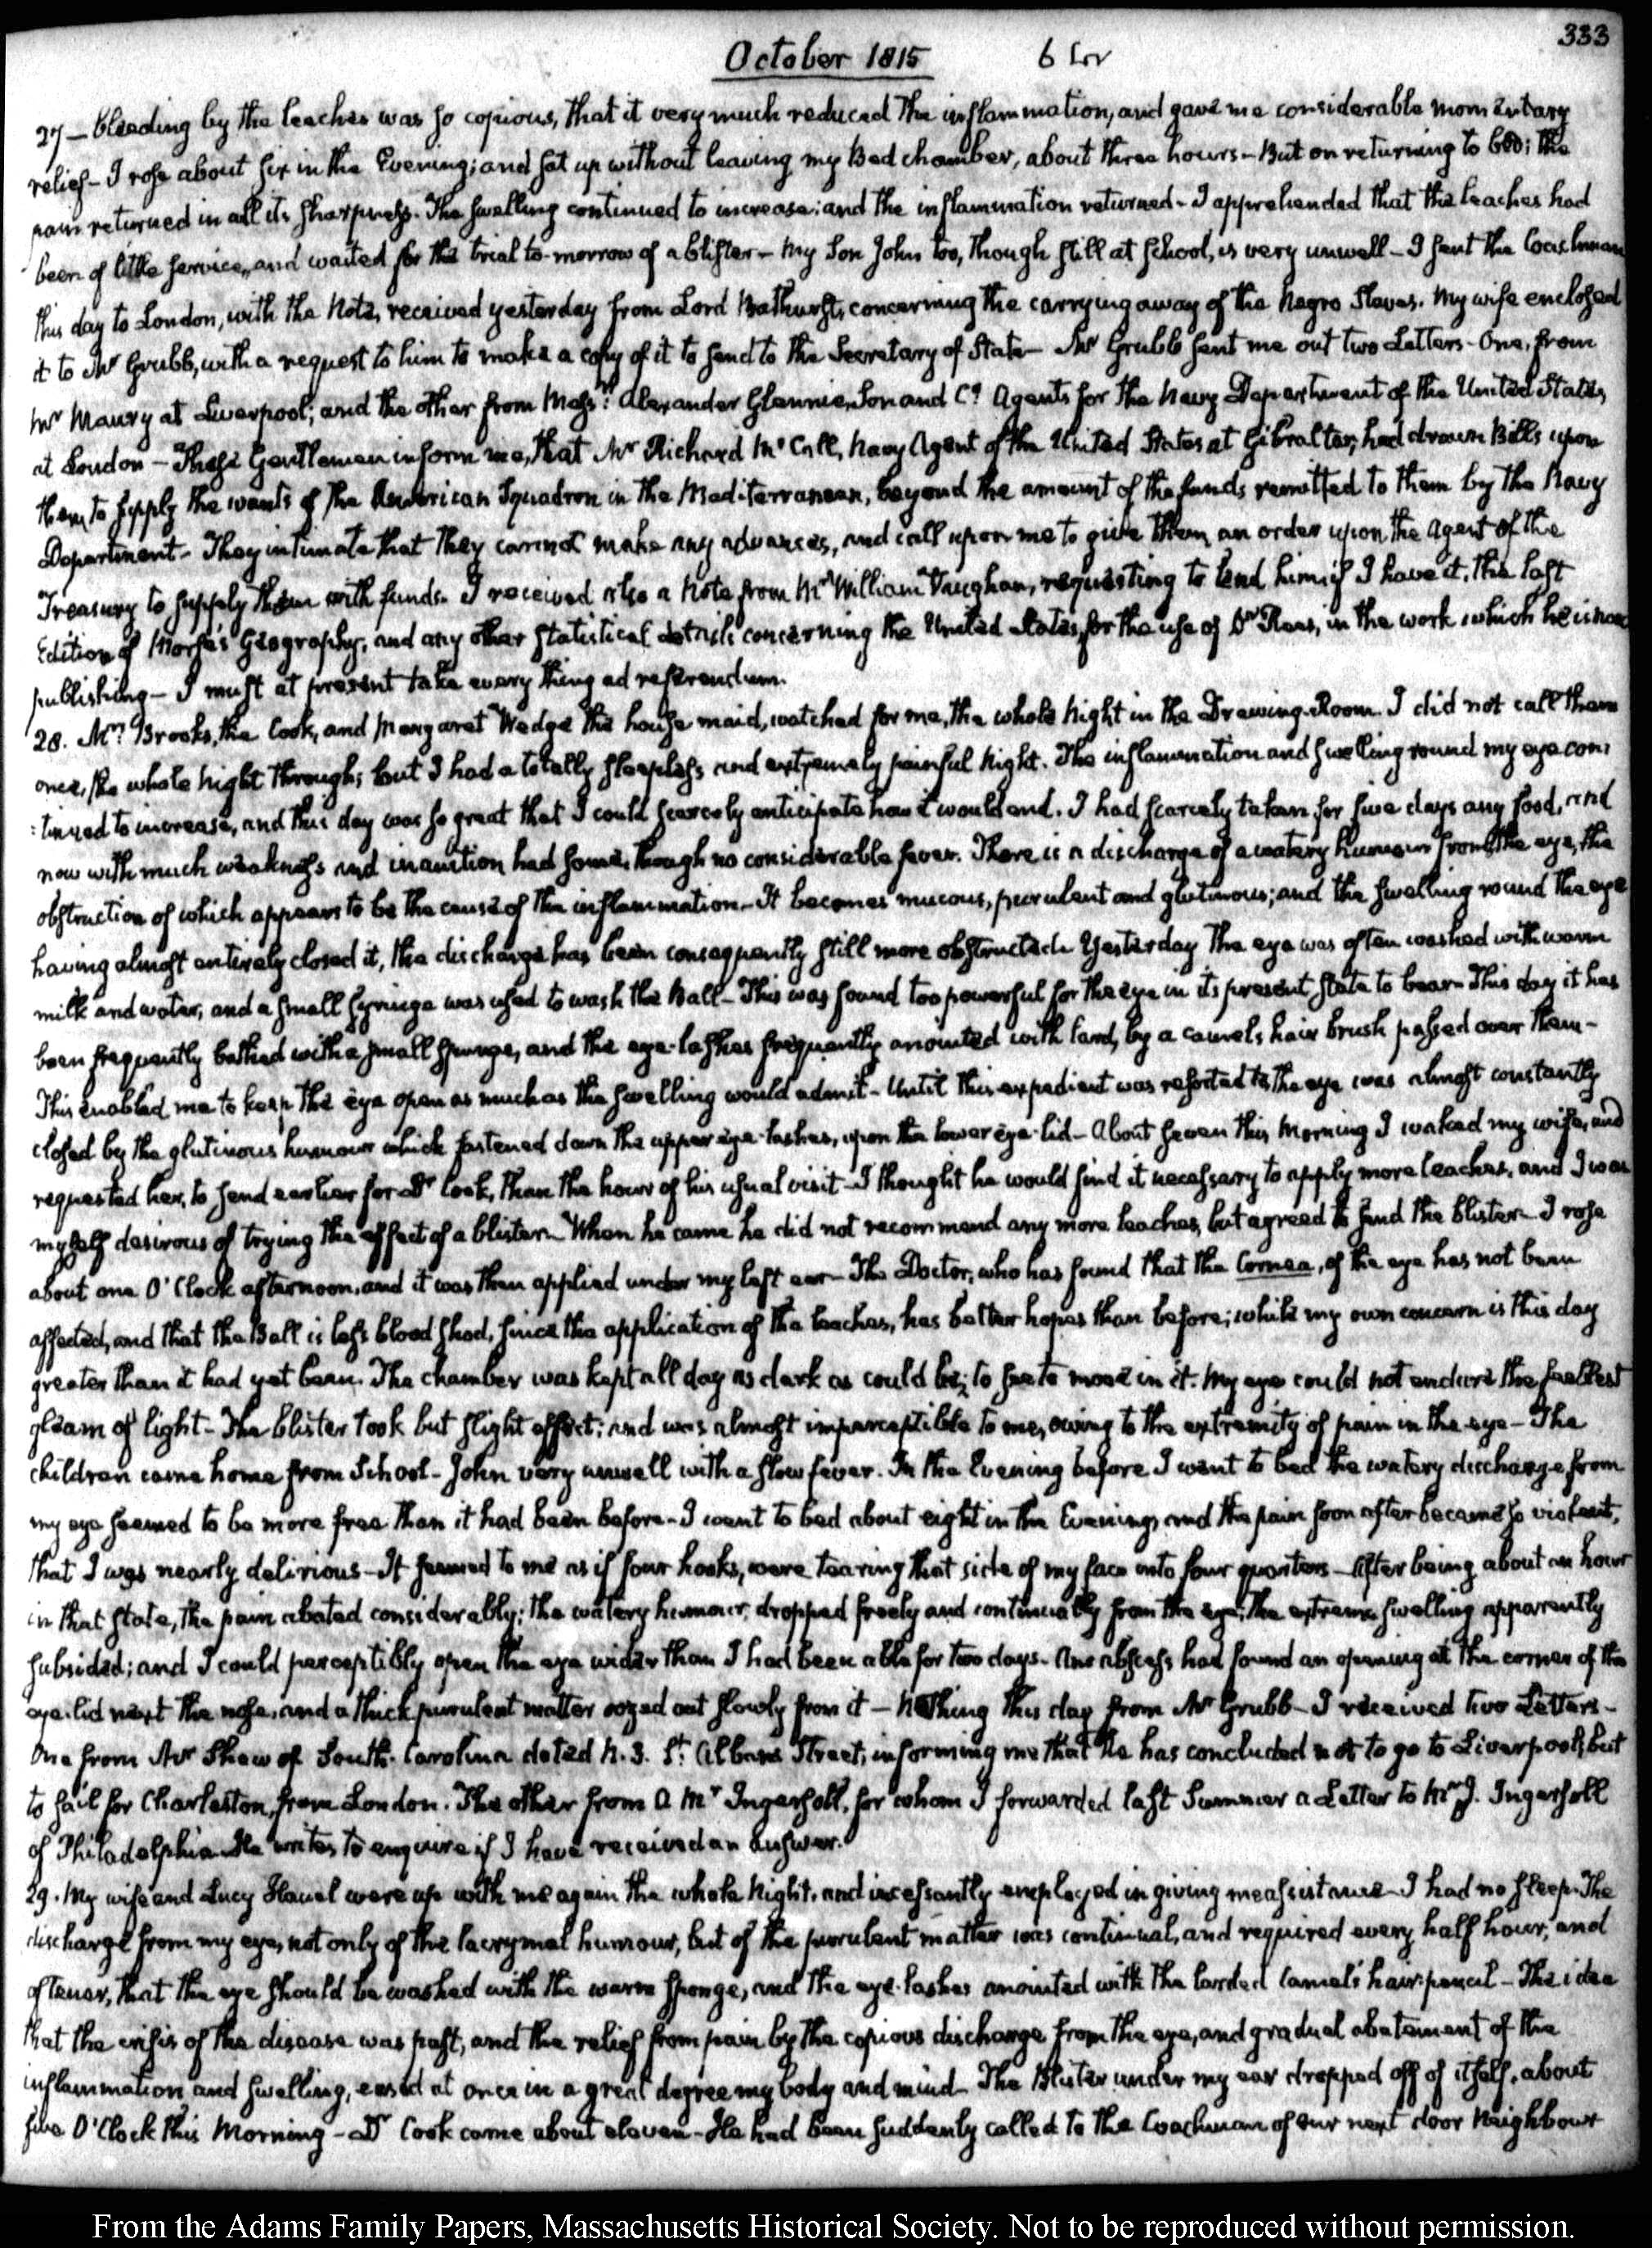 333
October 1815
27 — bleeding by the leeches was so copious, that it very much reduced the inflammation, and gave me considerable momentary
relief — I rose about six in the Evening; and sat up without leaving my Bed chamber, about three hours — But on returning to bed; the
pain returned in all its sharpness. The swelling continued to increase; and the inflammation returned — I apprehended that the leaches had
been of little service, and waited for the trial to-morrow of a blister — My Son John too, though still at School, is very unwell — I sent the Coachman
this day to London, with the Note, received yesterday from Lord Bathurst, concerning the carrying away of the Negro Slaves. My wife enclosed
it to Mr Grubb, with a request to him to make a copy of it to send to the Secretary of State — Mr Grubb sent me out two Letters — One, from
Mr Maury at Liverpool; and the other from Messrs: Alexander Glennie, Son and Co. Agents for the Navy Department of the United States,
at London — These Gentlemen inform me, that Mr Richard McCall, Navy Agent of the United States at Gibraltar, had drawn Bills upon
them, to supply the wants of the American Squadron in the Mediterranean, beyond the amount of the funds remitted to them by the Navy
Department — They intimate that they cannot make any advances, and call upon me to give them an order upon the Agent of the
Treasury to supply them with funds. I received also a Note from Mr William Vaughan, requesting to lend him, if I have it, the last
Edition of Morse's Geography, and any other statistical details concerning the United States, for the use of Dr Rees, in the work which he is now
publishing — I must at present take every thing ad referendum.
28. Mrs: Brooks, the Cook, and Margaret Wedge the house maid, watched for me, the whole Night in the Drawing-Room. I did not call them
once, the whole Night through; but I had a totally sleepless and extremely painful Night. The inflammation and swelling round my eye con:
:tinued to increase, and this day was so great that I could scarcely anticipate how it would end. I had scarcely taken for five days any food, and
now with much weakness and inanition had some, though no considerable fever. There is a discharge of a watery humour from the eye, the
obstruction of which appears to be the cause of the inflammation — It becomes mucous, purulent and glutinous; and the swelling round the eye
having almost entirely closed it, the discharge has been consequently still more obstructed. Yesterday the eye was often washed with warm
milk and water, and a small syringe was used to wash the Ball — This was found too powerful for the eye in its present state to bear — This day it has
been frequently bathed with a small sponge, and the eye-lashes frequently anointed with lard, by a camels hair brush passed over them —
This enabled me to keep the eye open as much as the swelling would admit — Until this expedient was resorted to the eye was almost constantly
closed by the glutinous humour which fastened down the upper eye-lashes, upon the lower eye-lid — About seven this Morning I waked my wife, and
requested her, to send earlier for Dr Cook, than the hour of his usual visit — I thought he would find it necessary to apply more leaches, and I was
myself desirous of trying the effect of a blister. When he came he did not recommend any more leaches, but agreed to send the blister — I rose
about one O'Clock afternoon, and it was then applied under my left ear — The Doctor, who has found that the Cornea, of the eye has not been
affected, and that the Ball is less blood shed, since the application of the leaches, has better hopes than before; while my own concern is this day
greater than it had yet been. The chamber was kept all day as dark as could be, to see to move in it. My eye could not endure the faintest
gleam of light — The blister took but slight effect; and was almost imperceptible to me, owing to the extremity of pain in the eye — The
children came home from School — John very unwell with a slow fever. In the Evening before I went to bed the watery discharge from
my eye seemed to be more free than it had been before — I went to bed about eight in the Evening, and the pain soon after became so violent,
that I was nearly delirious — It seemed to me as if four hooks, were tearing that side of my face into four quarters — After being about an hour
in that state, the pain abated considerably; the watery humour, dropped freely and continually from the eye; the extreme swelling apparently
subsided; and I could perceptibly open the eye wider than I had been able for two days. An abscess had found an opening at the corner of the
eye-lid next the nose, and a thick purulent matter oozed out slowly from it — Nothing this day from Mr Grubb — I received two Letters —
One from Mr Shaw of South-Carolina dated N. 3. St Albans Street, informing me that he has concluded not to go to Liverpool, but
to sail for Charleston, from London. The other from a Mr Ingersoll, for whom I forwarded last Summer a Letter to Mr J. Ingersoll
of Philadelphia — He writes to enquire if I have received an answer.
29. My wife and Lucy Houel were up with me again the whole Night, and incessantly employed in giving me assistance — I had no sleep. The
discharge from my eye, not only of the lacrymal humour, but of the purulent matter was continual, and required every half hour, and
oftener, that the eye should be washed with the warm sponge, and the eye-lashes anointed with the larded Camel's hair pencil — The idea
that the crisis of the disease was past, and the relief from pain by the copious discharge from the eye, and gradual abatement of the
inflammation and swelling, eased at once in a great degree my body and mind — The Blister under my ear dropped off of itself, about
five O'Clock this Morning — Dr Cook came about eleven — He had been suddenly called to the Coachman of our next door Neighbour
From the Adams Family Papers, Massachusetts Historical Society. Not to be reproduced without permission.